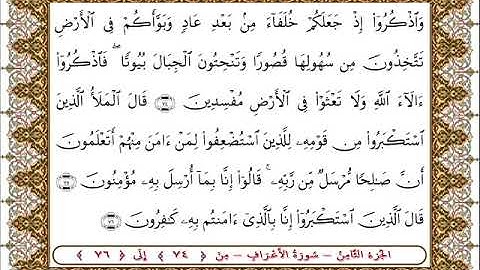 وَٱذْكُرُوٓا۟ إِذْ جَعَلَكُمْ خُلَفَآءَ مِنۢ بَعْدِ عَادٍ وَبَوَّأَكُمْ فِى ٱلْأَرْضِ
تَتَّخِذُونَ مِن سُهُولِهَا قُصُورًا وَتَنْحِتُونَ ٱلْجِبَالَ بُيُوتًا ۖ فَٱذْكُرُوٓا۟
ءَالَآءَ ٱللَّهِ وَلَا تَعْثَوْا۟ فِى ٱلْأَرْضِ مُفْسِدِينَ ﴿٧٤﴾ قَالَ ٱلْمَلَأُ ٱلَّذِينَ
ٱسْتَكْبَرُوا۟ مِن قَوْمِهِۦ لِلَّذِينَ ٱسْتُضْعِفُوا۟ لِمَنْ ءَامَنَ مِنْهُمْ أَتَعْلَمُونَ
أَنَّ صَـٰلِحًا مُّرْسَلٌ مِّن رَّبِّهِۦ ۚ قَالُوٓا۟ إِنَّا بِمَآ أُرْسِلَ بِهِۦ مُؤْمِنُونَ ﴿٧٥﴾
قَالَ ٱلَّذِينَ ٱسْتَكْبَرُوٓا۟ إِنَّا بِٱلَّذِىٓ ءَامَنتُم بِهِۦ كَـٰفِرُونَ ﴿٧٦﴾
الجزء الثامن - سورة الأعراف - من ﴿ ٧٤ ﴾ إلى ﴿ ٧٦ ﴾